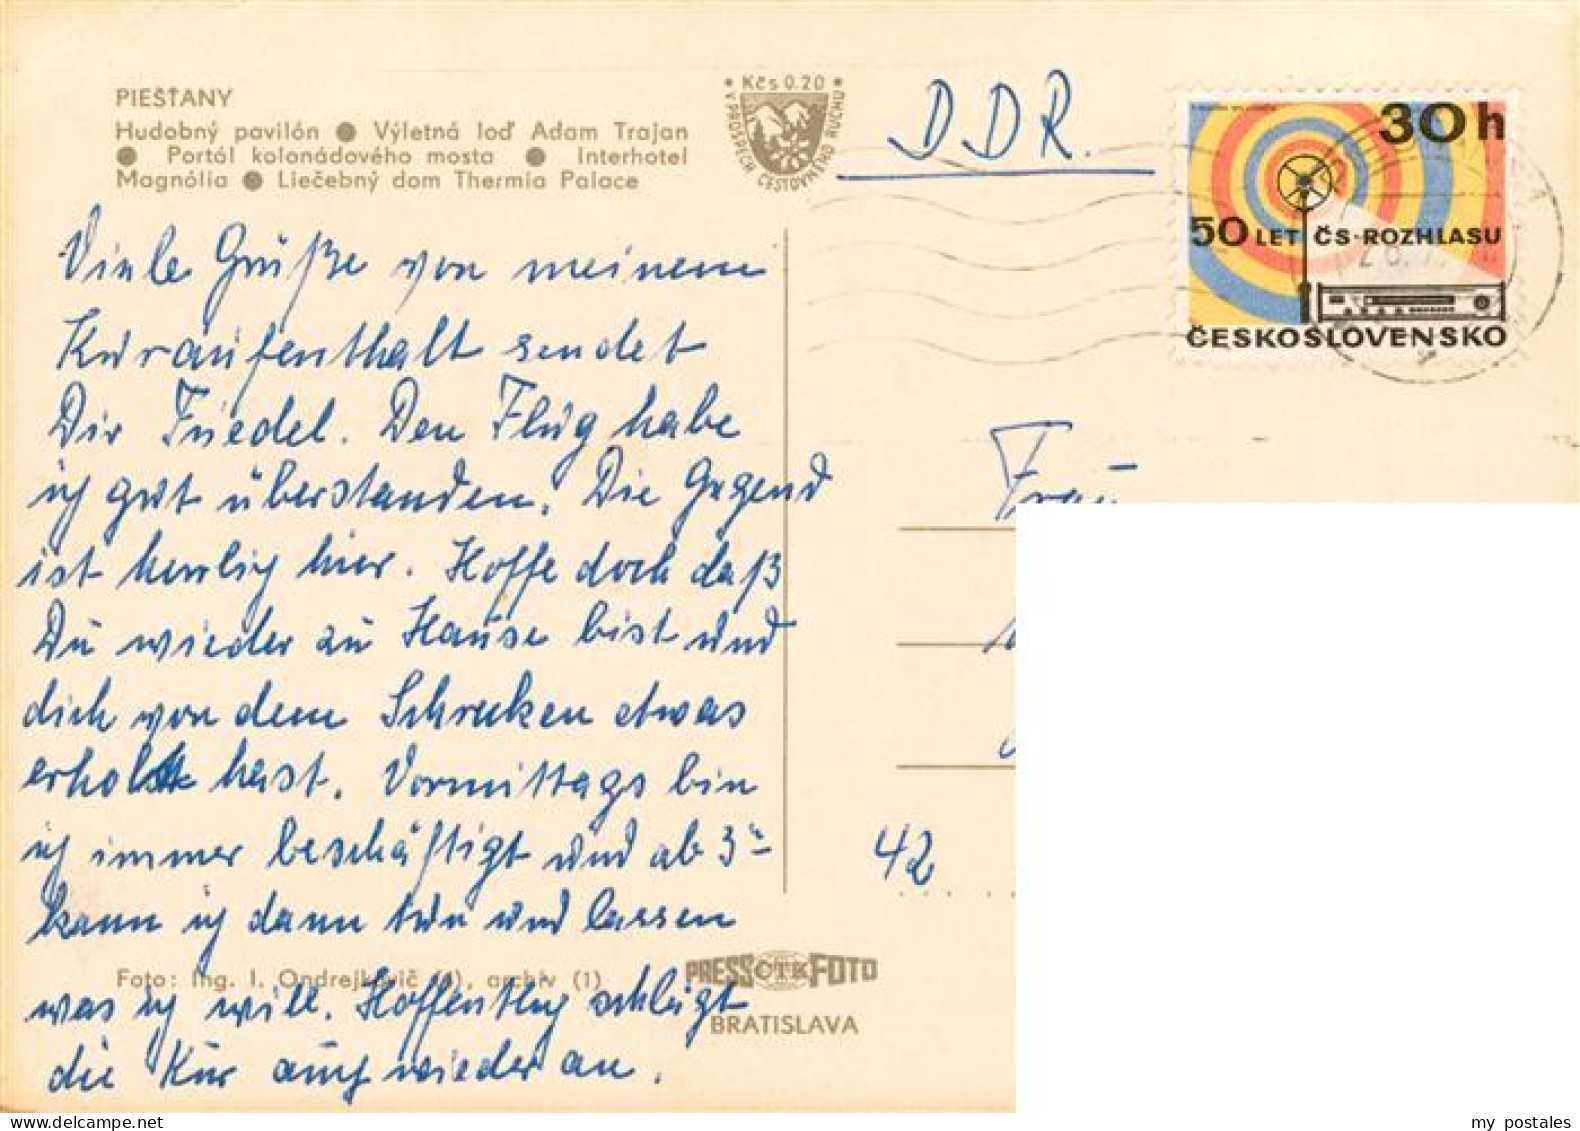 PIEŠŤANY
Hudobný pavilón ● Výletná loď Adam Trajan
● Portál kolonádového mosta ● Interhotel
Magnólia ● Liečebný dom Thermia Palace
• Kčs 0.20 •
V PROSPECH CESTOVNÉHO RUCHU
DDR.
30h
50 LET ČS. ROZHLASU
ČESKOSLOVENSKO
Viele Grüße von meinem
Kuraufenthalt sendet
Dir Friedel. Den Flug habe
ich gut überstanden. Die Gegend
ist herrlich hier. Hoffe doch daß
Du wieder zu Hause bist und
dich von dem Schrecken etwas
erholt hast. Vormittags bin
ich immer beschäftigt und ab 3
kann ich dann tun und lassen
was ich will. Hoffentlich schlägt
die Kur auch wieder an.
Frau
42
Foto: Ing. I. Ondrejkovič (4), archív (1)
PRESSFOTO
ČTK
BRATISLAVA
my postales